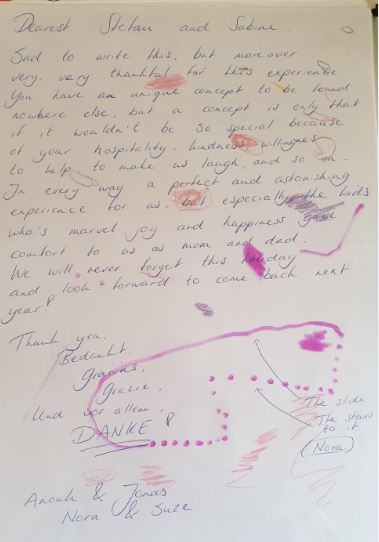 Dearest Stefan and Sabine.
Sad to write this, but moreover
very, very thankful for this experience
You have an unique concept to be found
nowhere else, but a concept is only that
if it wouldn't be so special because
of your hospitality, kindness, willingness
to help, to make us laugh, and so on..
In every way a perfect and astonishing
experience for us, but especially the kids
who's marvel, joy and happiness gave
comfort to us as mom and dad.
We will never forget this holiday
and look forward to come back next
year!
Thank you.
Bedankt.
Grazie.
Und vor allem,
DANKE!
The slide
The stairs
to it
(Nora)
Anouk & Jonas
Nora & Suze